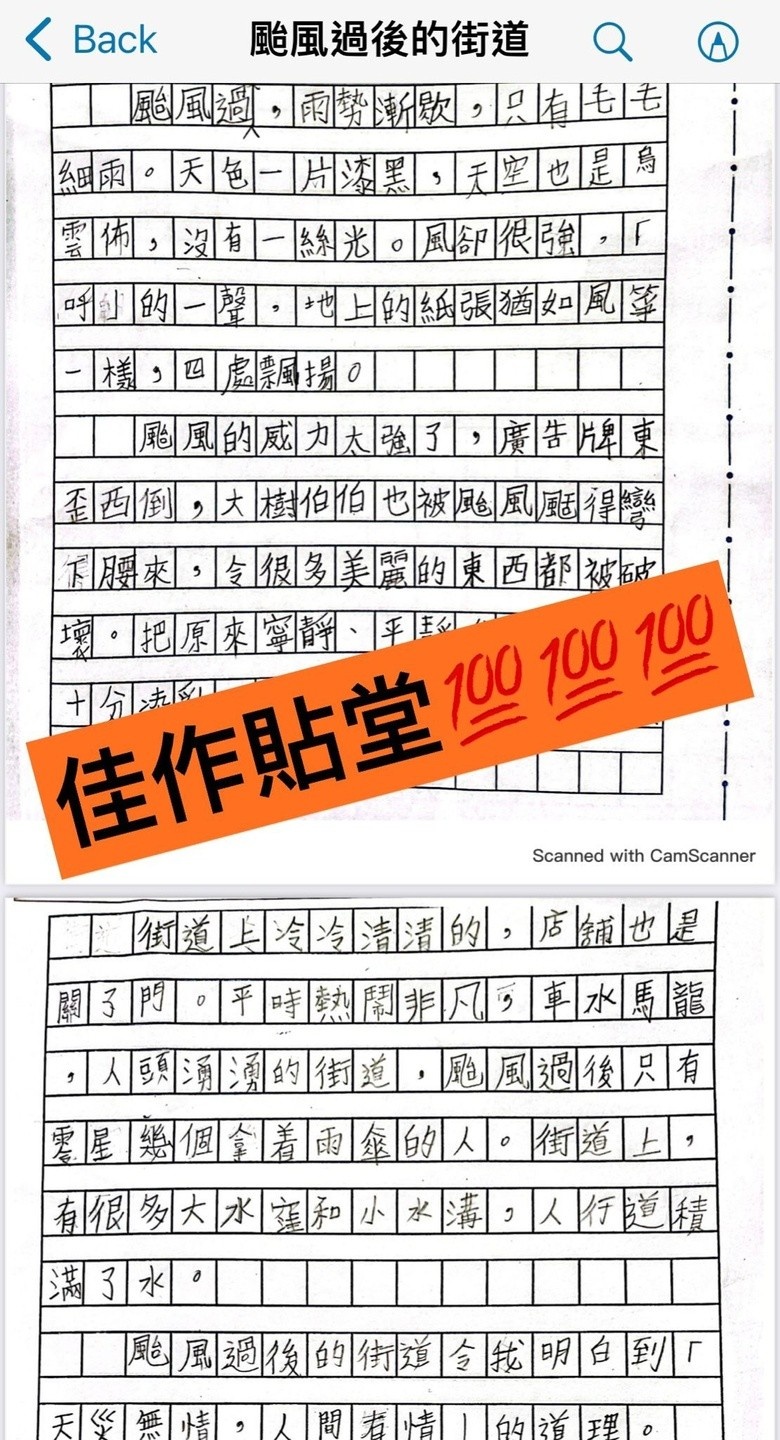 Back
颱風過後的街道
颱風過，雨勢漸歇，只有毛毛
細雨。天色一片漆黑，天空也是烏
雲佈，沒有一絲光。風卻很強，「
呼」的一聲，地上的紙張猶如風箏
一樣，四處飄揚。
颱風的威力太強了，廣告牌東
歪西倒，大樹伯伯也被颱風颳得彎
腰來，令很多美麗的東西都被破
壞。把原來寧靜、平靜
十分
佳作貼堂💯💯💯
Scanned with CamScanner
街道上冷冷清清的，店舖也是
關了門。平時熱鬧非凡，車水馬龍
，人頭湧湧的街道，颱風過後只有
零星幾個拿着雨傘的人。街道上，
有很多大水窪和小水溝，人行道積
滿了水。
颱風過後的街道令我明白到「
天災無情，人間有情」的道理。